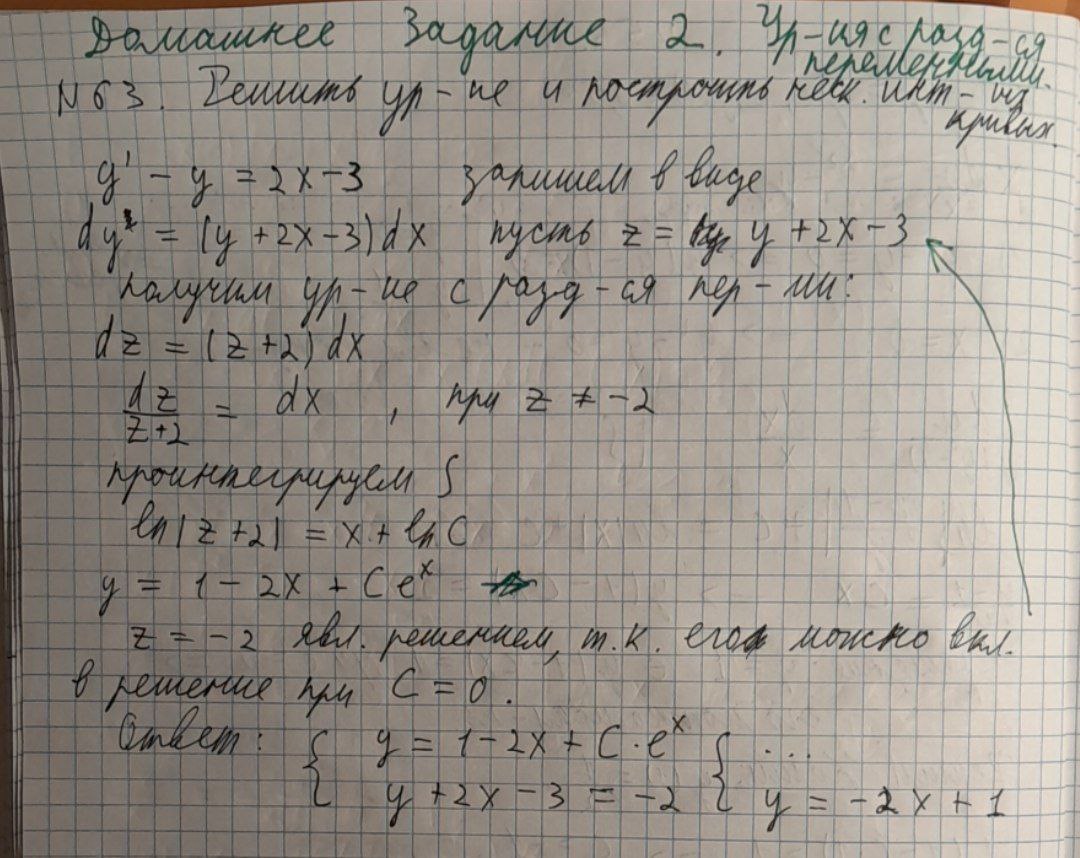 Домашнее Задание 2. Ур-ия с разд-ся
переменными.
N 63. Решить ур-ие и построить неск. инт-ых
кривых.
y' - y = 2x - 3 запишем в виде
dy = (y + 2x - 3) dx пусть z = y + 2x - 3
получим ур-ие с разд-ся пер-ми:
dz = (z + 2) dx
dz/(z+2) = dx , при z ≠ -2
проинтегрируем ∫
ln|z + 2| = x + ln C
y = 1 - 2x + C e^x
z = -2 явл. решением, т.к. его можно вкл.
в решение при C = 0.
Ответ: { y = 1 - 2x + C · e^x { ...
y + 2x - 3 = -2 y = -2x + 1